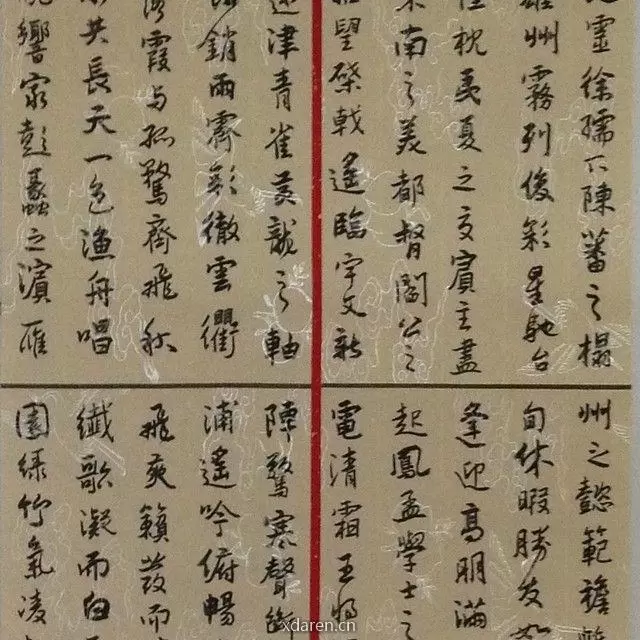 靈徐孺下陳蕃之榻
雄州霧列俊彩星馳台
隍枕夷夏之交賓主盡
東南之美都督閻公之
望棨戟遙臨宇文新
州之懿範襜帷
旬休暇勝友
逢迎高朋滿
起鳳孟學士之
電清霜王將
津青雀黃龍之軸
銷雨霽彩徹雲衢
落霞与孤鶩齊飛秋
水共長天一色漁舟唱
晚響窮彭蠡之濱雁
陣驚寒聲斷
浦遙吟俯暢
飛爽籟發而
纖歌凝而白
園綠竹氣凌
xdaren.cn